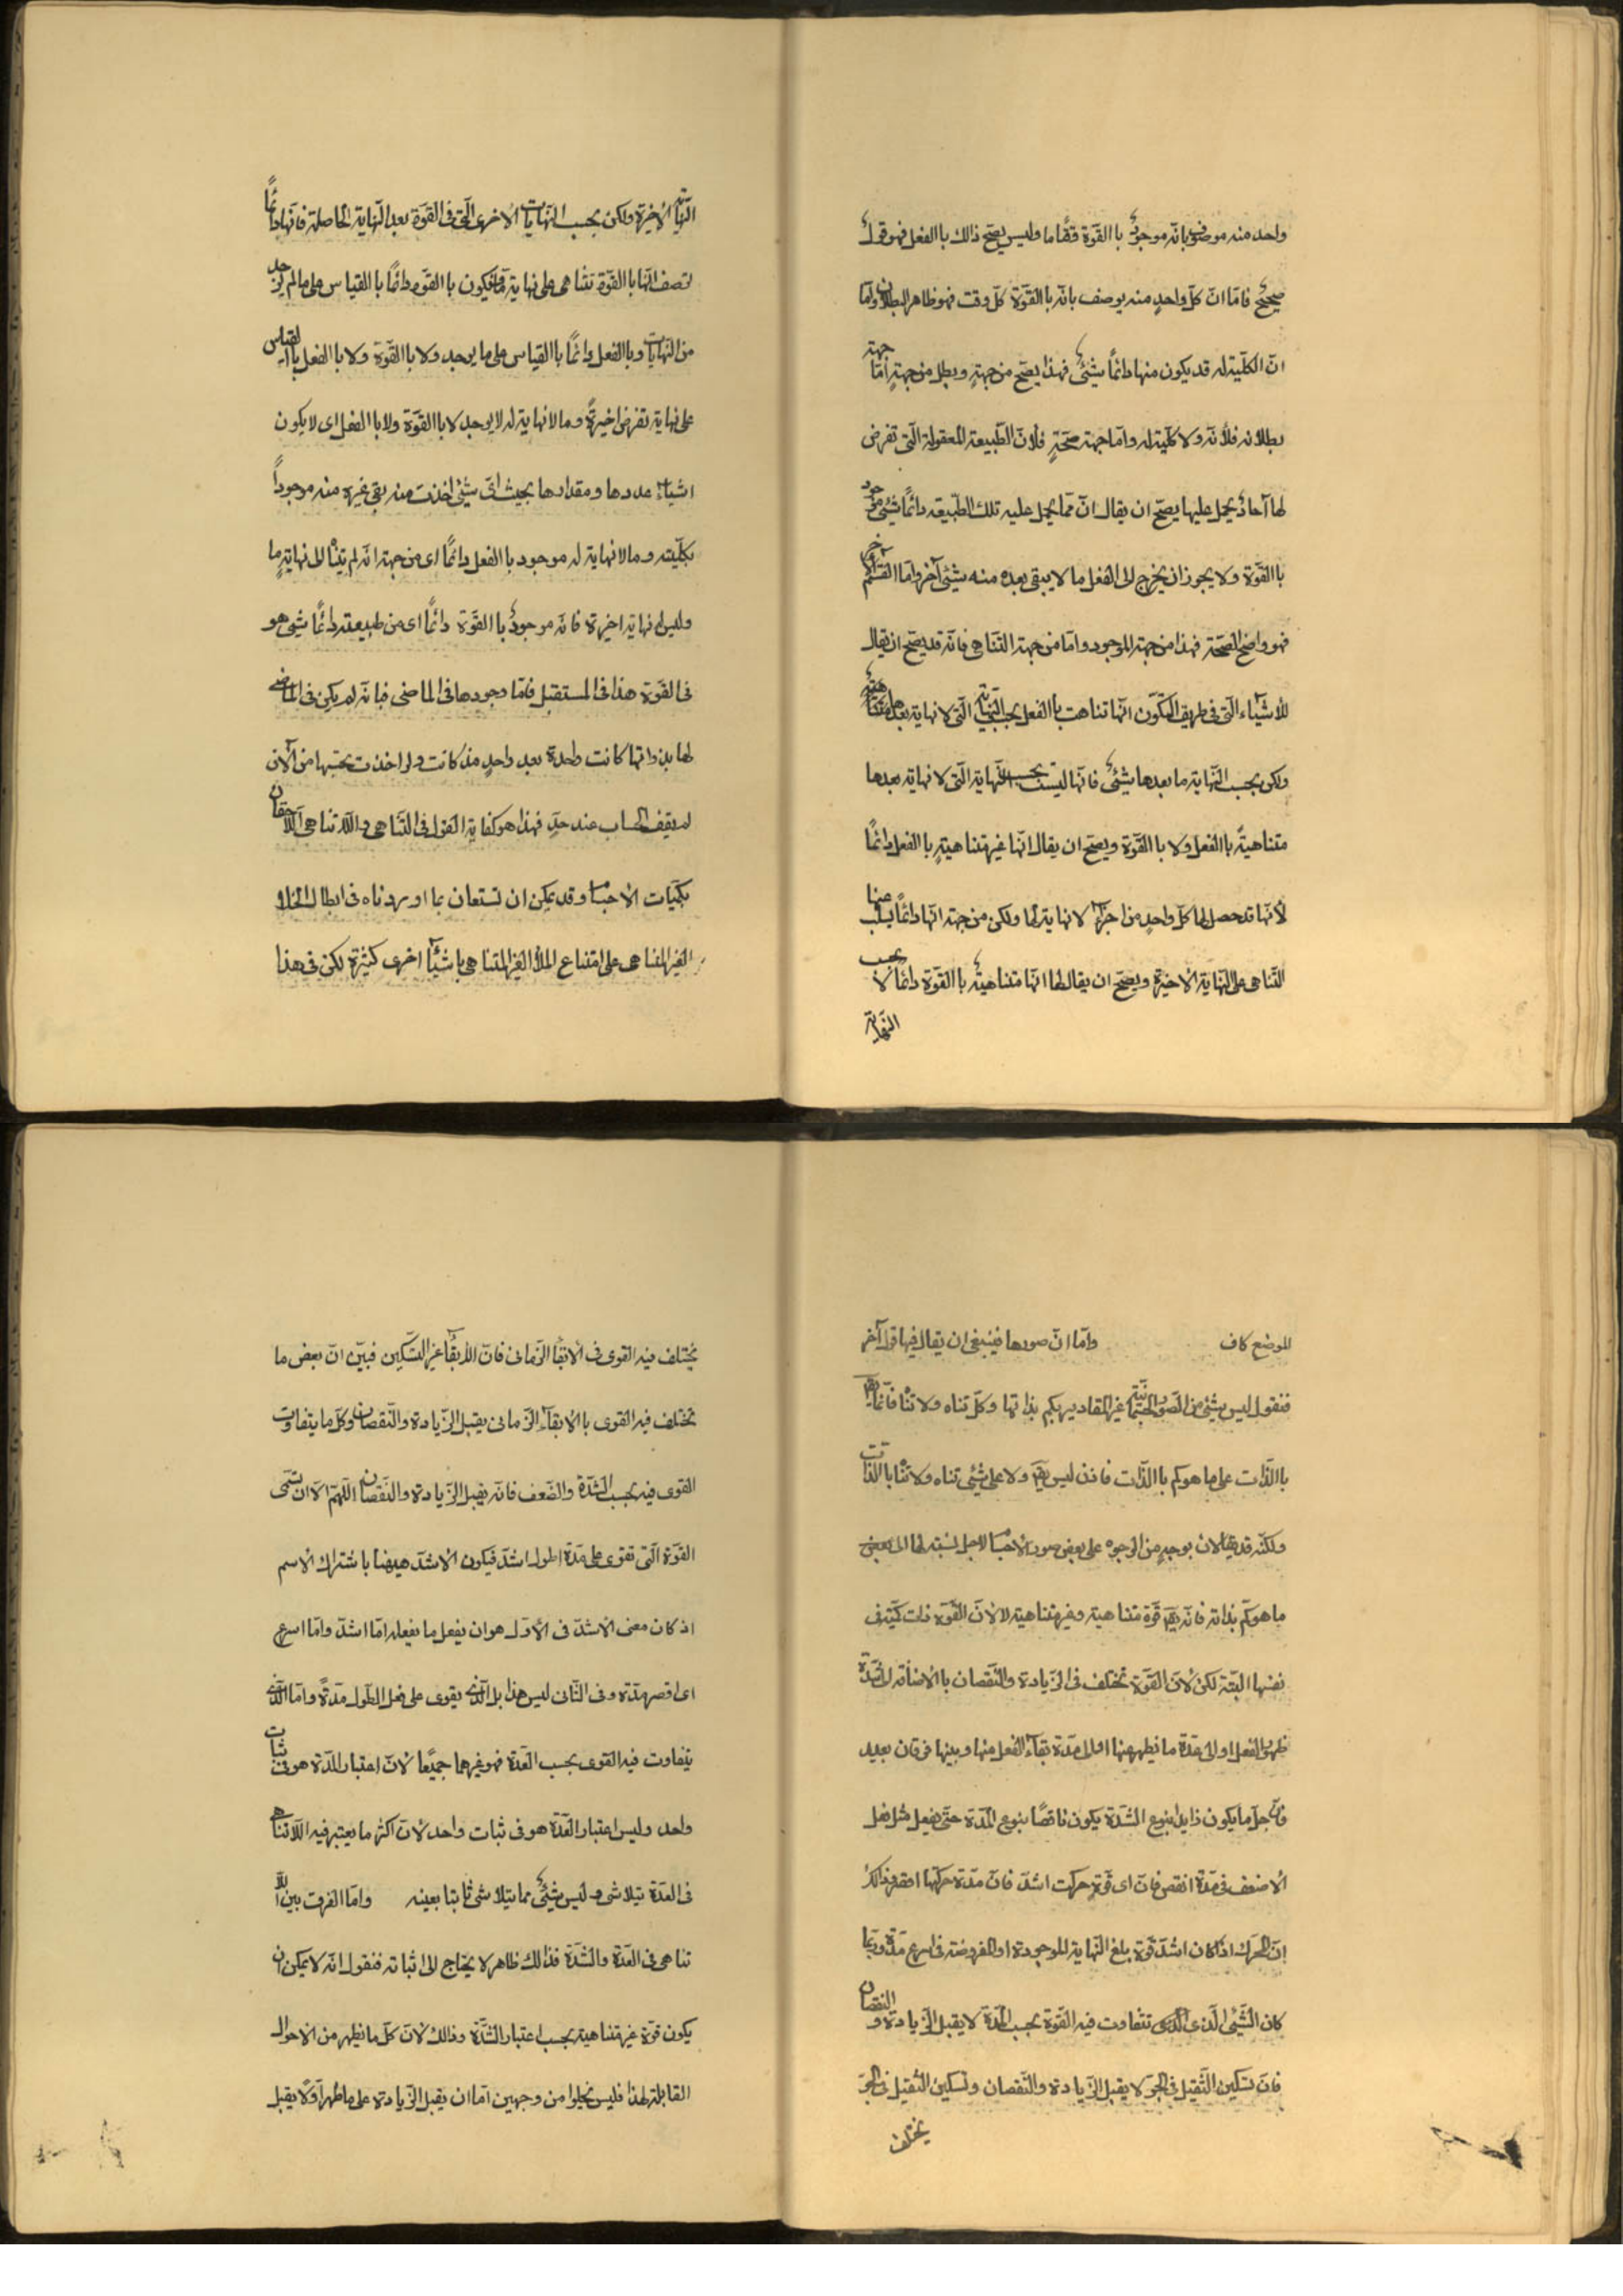 واحد منه موصوف بانّه موجودٌ باالقوّة وقتًا ما وليس يصحّ ذالك باالفعل فهو قول
صحيح فامّا انّ كلّ واحدٍ منه يوصف بانّه باالقوّة كلّ وقت فهو ظاهر البطلان وامّا
انّ الكلّيّة له قد يكون منها دائماً شيئٌ فهذا يصحّ من جهةٍ ويبطل من جهةٍ امّا جهة
بطلانه فلأنّه ولا كلّية له وامّا جهة صحّةٍ فلأنّ الطّبيعة المعقولة الّتى تفرض
لها آحادٌ يحمل عليها يصحّ ان يقال انّ ممّا يحمل عليه تلك الطّبيعة دائماً شيئ موجود
باالقوّة ولا يجوز ان يخرج الى الفعل ما لا يبقى بعده منه شيئ آخر وامّا القسم الآخر
فهو واضح الصّحّة فهذا من جهة الموجود وامّا من جهة التّناهى فانّه قد يصحّ ان يقال
للأشيآء الّتى فى طريق التّكوّن انّها تناهت باالفعل بحسب النّهاية الّتى لا نهاية بعدها متناهيةٌ
ولكن بحسب النّهاية ما بعدها شيئٌ فانّها ليست بحسب النّهاية الّتى لا نهاية بعدها
متناهيةً باالفعل ولا باالقوّة ويصحّ ان يقال انّها غير متناهيةٍ باالفعل دائمًا
لأنّها قد حصل لها كلّ واحدٍ من اجزآء لا نهاية لها ولكن من جهة انّها دائماً يسلب عنها
التّناهى على النّهاية الأخيرة ويصحّ ان يقال لها انّها متناهيةٌ باالقوّة دائماً لا بحسب
النّهاية
النّهاية الأخيرة ولكن بحسب النّهايات الأخرى الّتى فى القوّة بعد النّهاية الحاصلة فانّها دائماً
توصف انّها باالقوّة تتناهى على نهاية ما فيكون باالقوّه دائماً باالقياس على ما لم يوجد
من النّهايات وباالفعل دائماً باالقياس على ما يوجد ولا باالقوّة ولا باالفعل باالقياس
على نهاية تفرض اخيرةً وما لا نهاية له لا يوجد لا باالقوّة ولا باالفعل اى لا يكون
اشيآء عددها ومقدارها بحيث اىّ شيئ اخذت منه بقى غيره منه موجوداً
بكلّيته وما لا نهاية له موجود باالفعل دائمًا اى من جهة انّه لم يتناه الى نهايةٍ ما
وليس له نهاية اخيرة فانّه موجودٌ باالقوّة دائمًا اى من طبيعته دائمًا شيئ هو
فى القوّة هذا فى المستقبل فامّا وجودها فى الماضى فبانّه لم يكن فى الماضى
لها بذواتها كانت واحدة بعد واحدٍ مذ كانت ولو اخذت بحسبها من الآن
لم يقف الحساب عند حدٍّ فهذا هو كفاية القول فى التّناهى واللاّتناهى اللاّحقان
بكمّيات الأجسام وقد يمكن ان تستعان بما اوردناه فى ابطال الخلاء
الغير المتناهى على امتناع الملأ الغير المتناهى باشيآء اخرى كثيرة لكن فى هذا
الموضع كاف وامّا انّ صورها فينبغى ان يقال فيها قول آخر
فنقول ليس شيئ من الصّور الجسمانيّة غير المقادير بكم بذاتها وكلّ تناه ولا تناه فانّما يقع
باالذّات على ما هو كم باالذّات فاذن ليس يقع ولا على شيئ تناه ولا تناه باالذّات
ولكنّه قد يقالان بوجهٍ من الوجوه على بعض صور الأجسام لاجل نسبة لها الى بعض
ما هو كمّ بذاته فانّه يقع قوّة متناهية وغير متناهية لا لأنّ القوّة ذات كمّية فى
نفسها البتّة لكن لأنّ القوّة تختلف فى الزّيادة والنّقصان باالأضافة الى شدّة
ظهور الفعل او الى عدّة ما يظهر عنها او الى مدّة بقآء الفعل منها وبينها فرقان بعيد
فانّ جلّ ما يكون زايدا بنوع الشّدّة يكون ناقصًا بنوع المدّة حتّى يفعل مثل فعل
الأضعف فى مدّة انقص فانّ اى قوّةٍ حرّكت اشدّ فانّ مدّة حركتها اقصر وذالك
انّ المحرّك اذا كان اشدّ قوّة بلغ النّهاية الموجودة او المفروضة فى اسرع مدّة وربّما
كان الشّيئ الّذى الّذى تتفاوت فيه القوّة بحسب المدّة لا يقبل الزّيادة و النقصان
فانّ تسكين الثّقيل فى الجوّ لا يقبل الزّيادة والنّقصان وتسكين الثّقيل فى الجوّ
يختلف
يختلف فيه القوى فى الأبقآء الزّمانى فانّ الأبقآء غير التّسكين فبيّن انّ بعض ما
تختلف فيه القوى باالأبقآء الزّمانى يقبل الزّيادة والنّقصان وكلّ ما يتفاوت
القوى فيه بحسب الشّدّة والضّعف فانّه يقبل الزّيادة والنّقصان اللّهمّ الاّ ان تسمّى
القوّة الّتى تقوى على مدّة اطول اشدّ فيكون الأشدّ هيهنا باشتراك الأسم
اذ كان معنى الأشدّ فى الأوّل هو ان يفعل ما يفعله امّا اشدّ وامّا اسرع
اى اقصر مدّة وفى الثّانى ليس هذا بل الّذى يقوى على فعل اطول مدّةً وامّا الّذى
يتفاوت فيه القوى بحسب العدّة فهو غيرهما جميعًا لأنّ اعتبار المدّة هو فى ثبات
واحد وليس اعتبار العدّة هو فى ثبات واحد لأنّ اكثر ما يعتبر فيه اللاّتناهى
فى العدّة يتلاشى وليس شيئٌ مما يتلاشى ثابتا بعينه وامّا الفرق بين اللاّ
تناهى فى العدّة والشّدّة فذالك ظاهر لا يحتاج الى اثباته فنقول انّه لا يمكن ان
يكون قوّة غير متناهية بحسب اعتبار الشّدّة وذالك لأنّ كلّ ما يظهر من الأحوال
القابلة لهذا فليس يخلوا من وجهين امّا ان يقبل الزّيادة على ما ظهر او لا يقبل